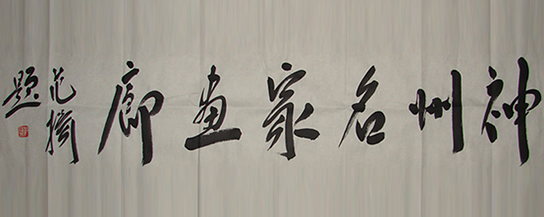 神州名家画廊
范扬
题